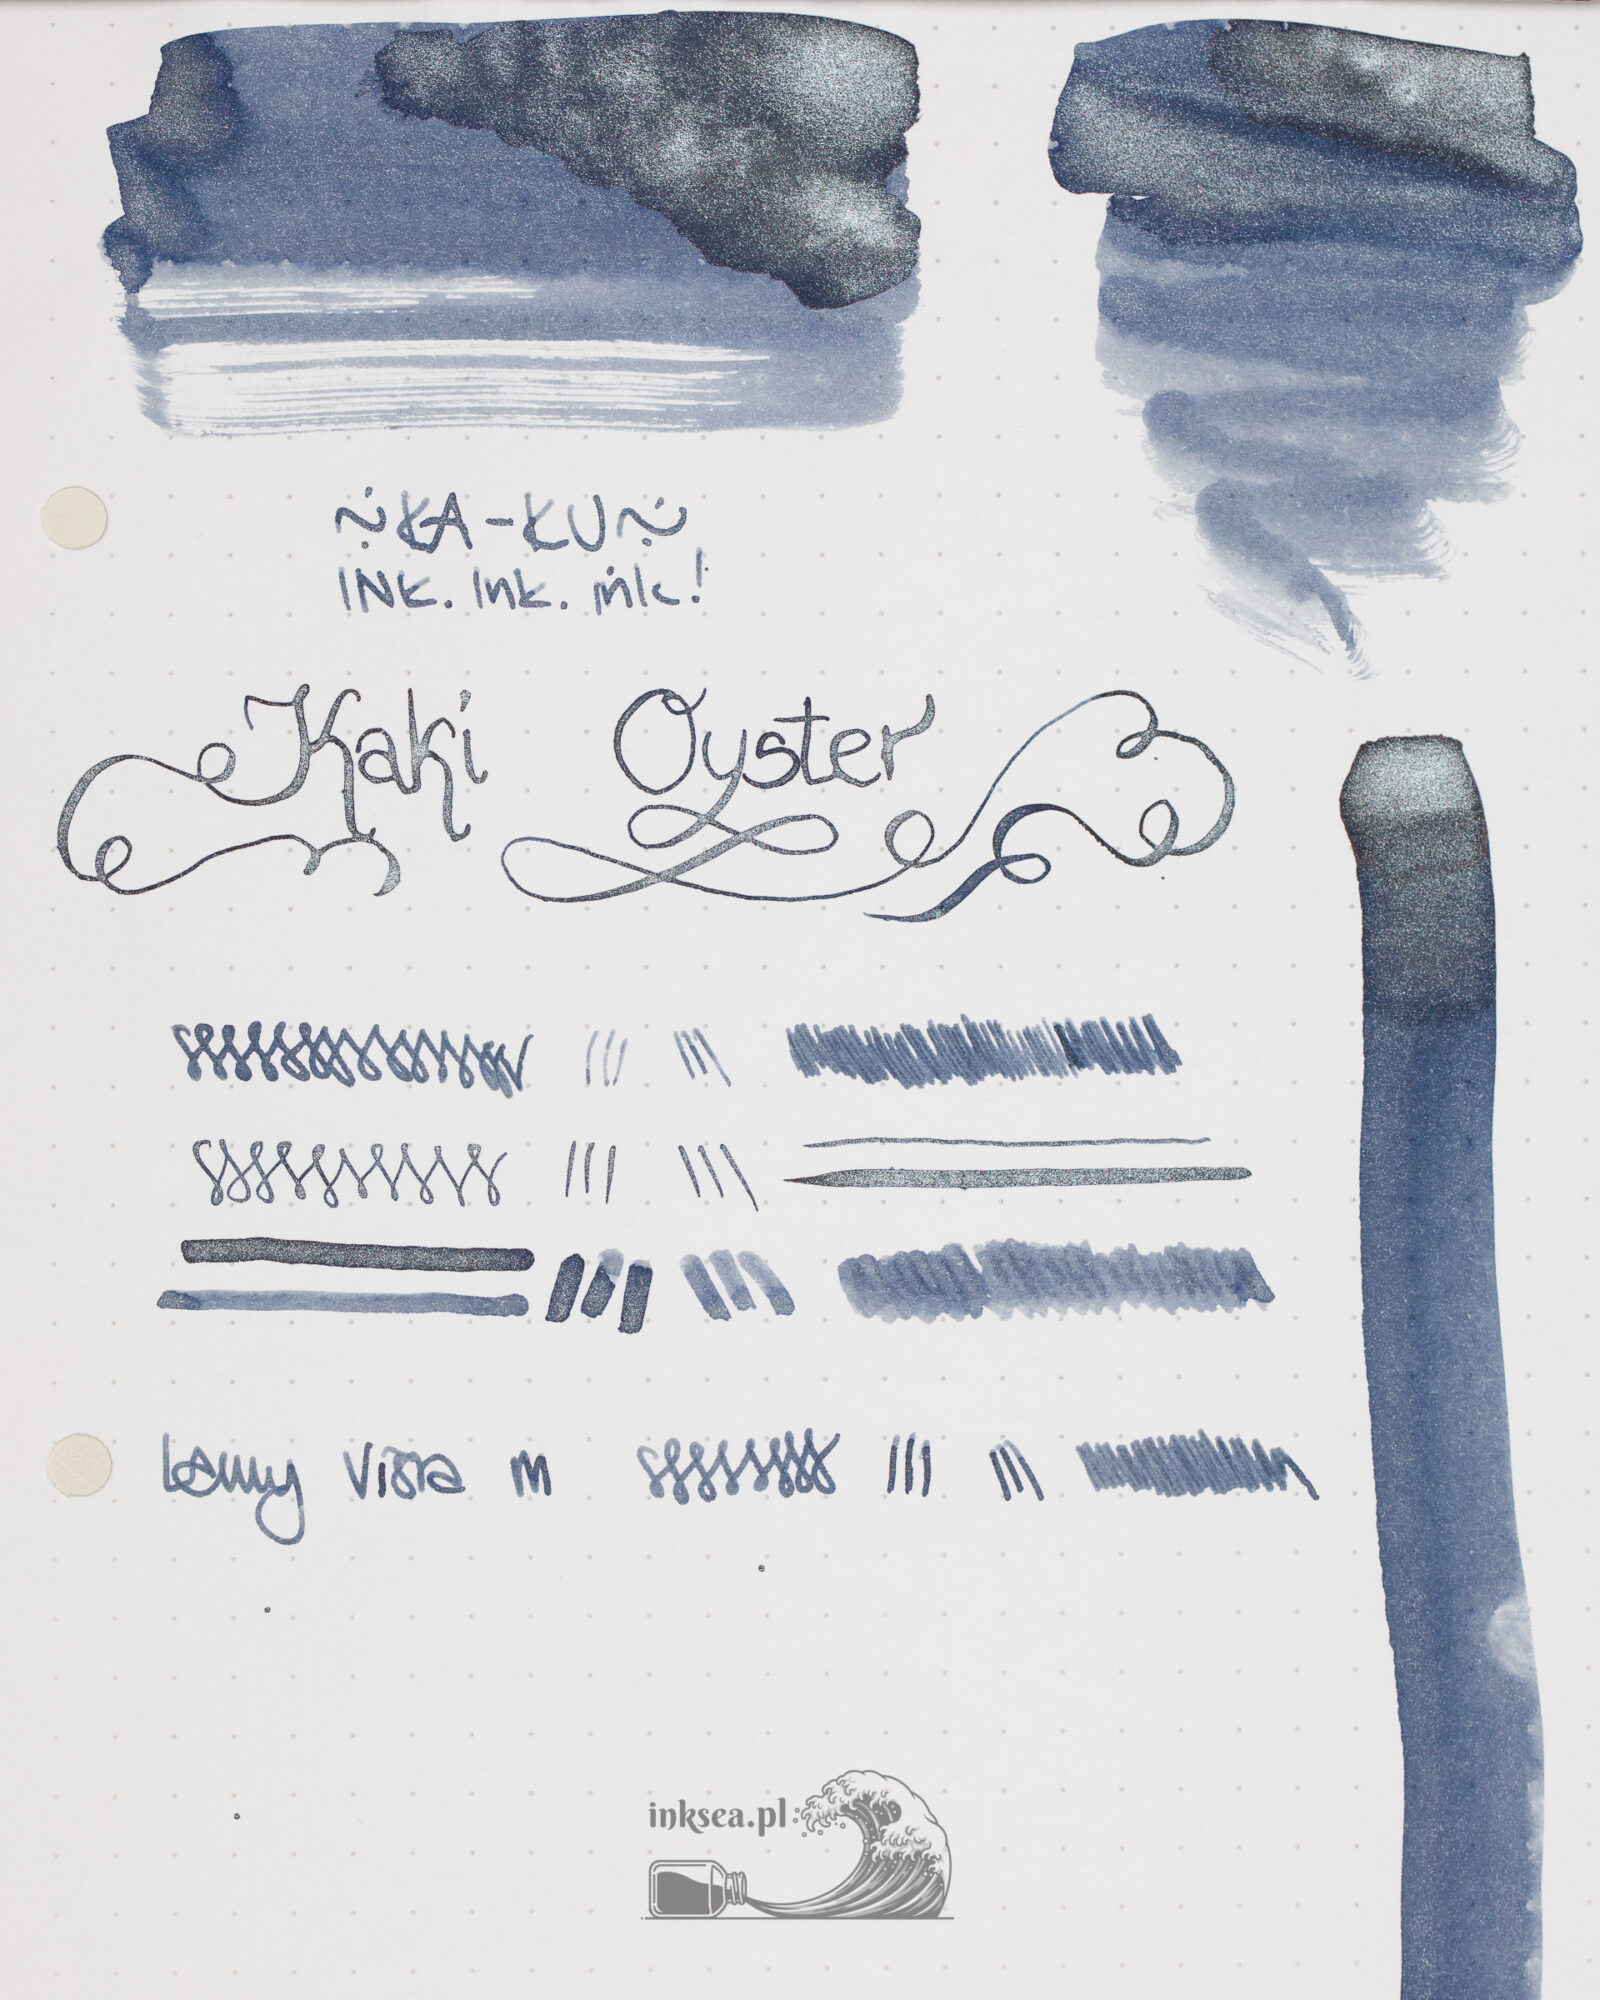 ~KA-KU~
INK. Ink. ink!
Kaki Oyster
Lamy Vista m
inksea.pl